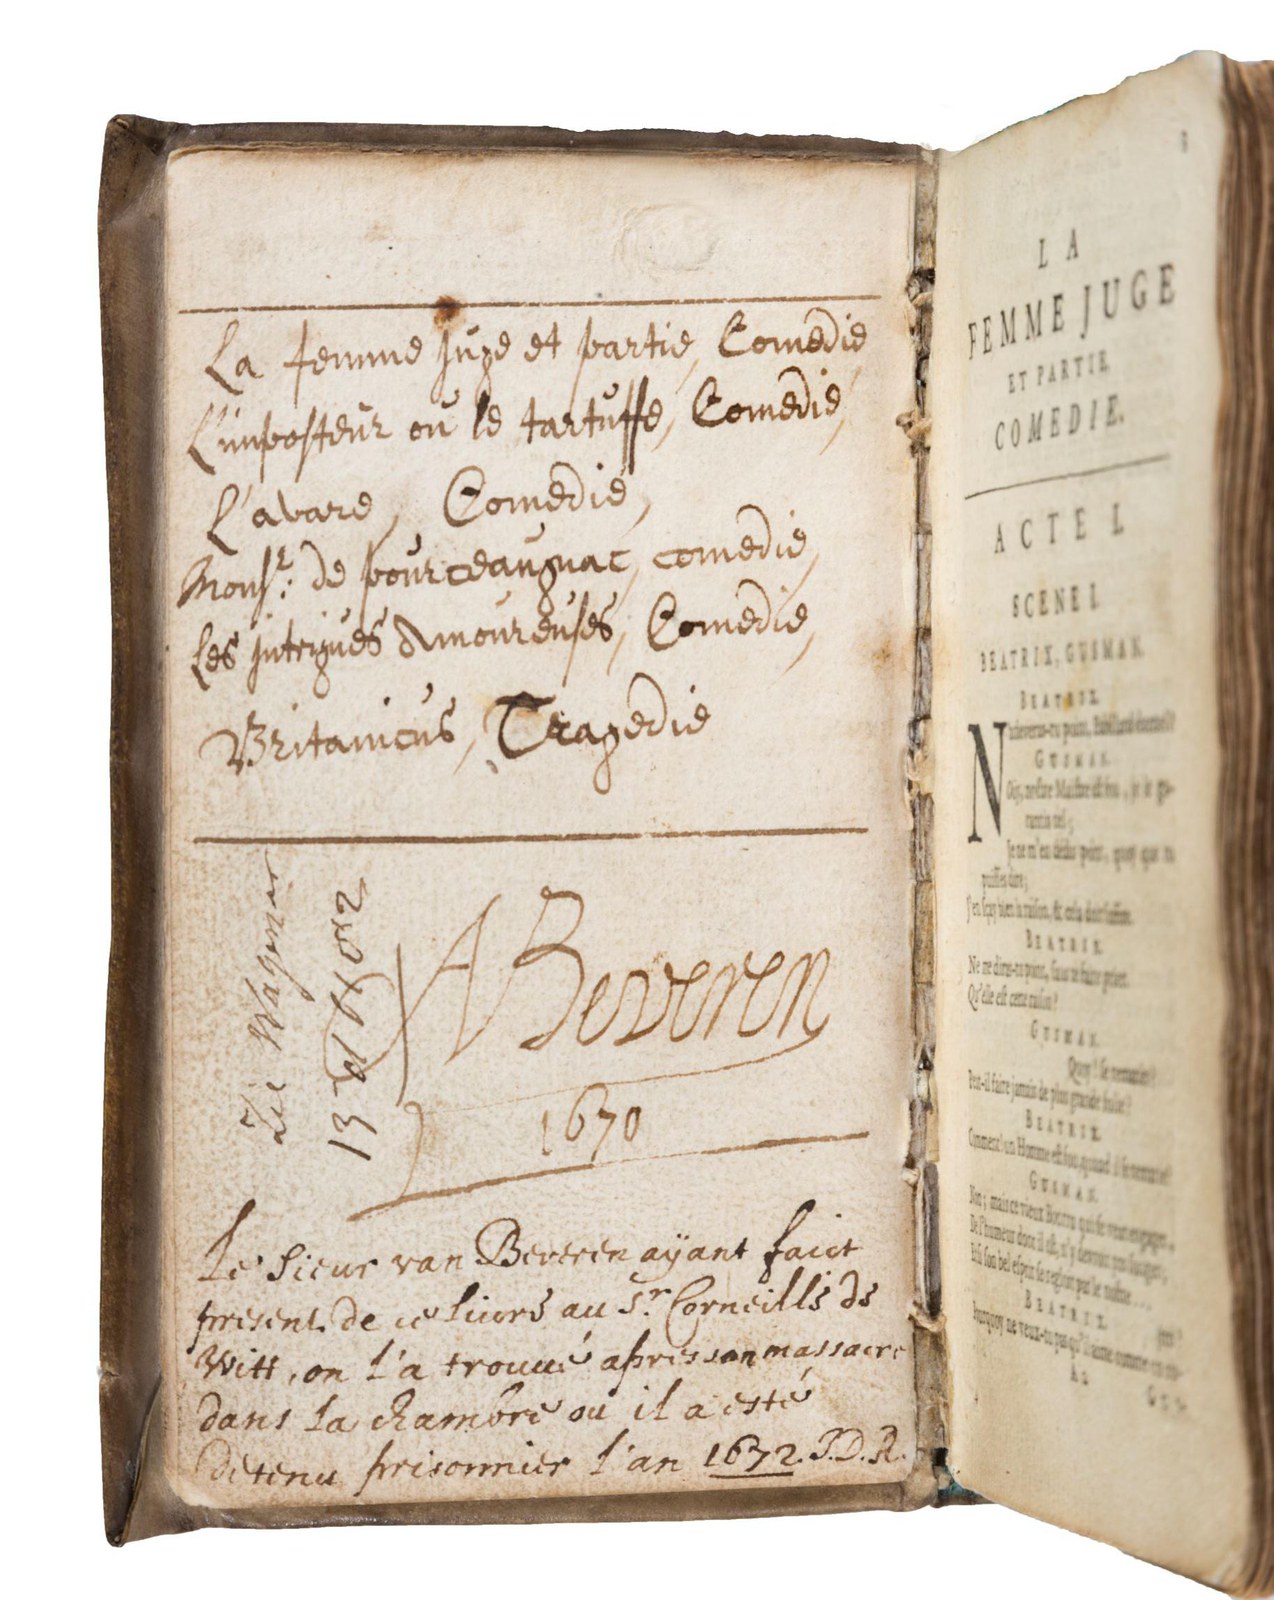 La femme juge et partie, Comedie
L'imposteur ou le tartuffe, Comedie,
L'avare, Comedie,
Monsr: de pourceaugnac, comedie,
Les jntrigues Amoureuses, Comedie,
Britanicus, Tragedie
Wagenaer
13
ABeveren
1670
Le Sieur van Beveren aÿant faict
present de ce livre au Sr. Corneille de
Witt, on l'a trouué apres son massacre
dans la chambre ou il a esté
detenu prisonnier l'an 1672. J.D.R.
8
LA
FEMME JUGE
ET PARTIE,
COMEDIE.
ACTE I.
SCENE I.
BEATRIX, GUSMAN.
BEATRIX.
GUSMAN.
Ouy, nostre Maistre est fou, je le ga-
rantis tel;
Je ne m'en dédis point, quoy que tu
puisses dire;
J'en sçay bien la raison, & cela doit suffire.
BEATRIX.
Ne me diras-tu point, sans te faire prier,
Qu'elle est cette raison?
GUSMAN.
Quoy! se remarier?
Peut-il faire jamais de plus grande folie?
BEATRIX.
Comment! un Homme est fou, quand il se remarie?
GUSMAN.
Non; mais ce vieux Bourru qui se veut engager,
De l'humeur dont il est, n'y devroit pas songer;
Et si son bel esprit se regloit par le nostre...
BEATRIX.
Pourquoy ne veux-tu pas qu'il aime comme un au-
A2